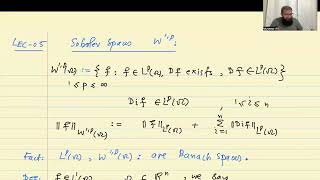 LEC-05 Sobolev Spaces W^{1,p} :
W^{1,p}(Ω) := { f : f ∈ L^p(Ω), Df exists, Df ∈ L^p(Ω) }
1 ≤ p ≤ ∞
D_i f ∈ L^p(Ω) 1 ≤ i ≤ n
‖f‖_{W^{1,p}(Ω)} := ‖f‖_{L^p(Ω)} + \sum_{i=1}^{n} ‖D_i f‖_{L^p(Ω)}
Fact: L^p(Ω), W^{1,p}(Ω) : are Banach spaces.